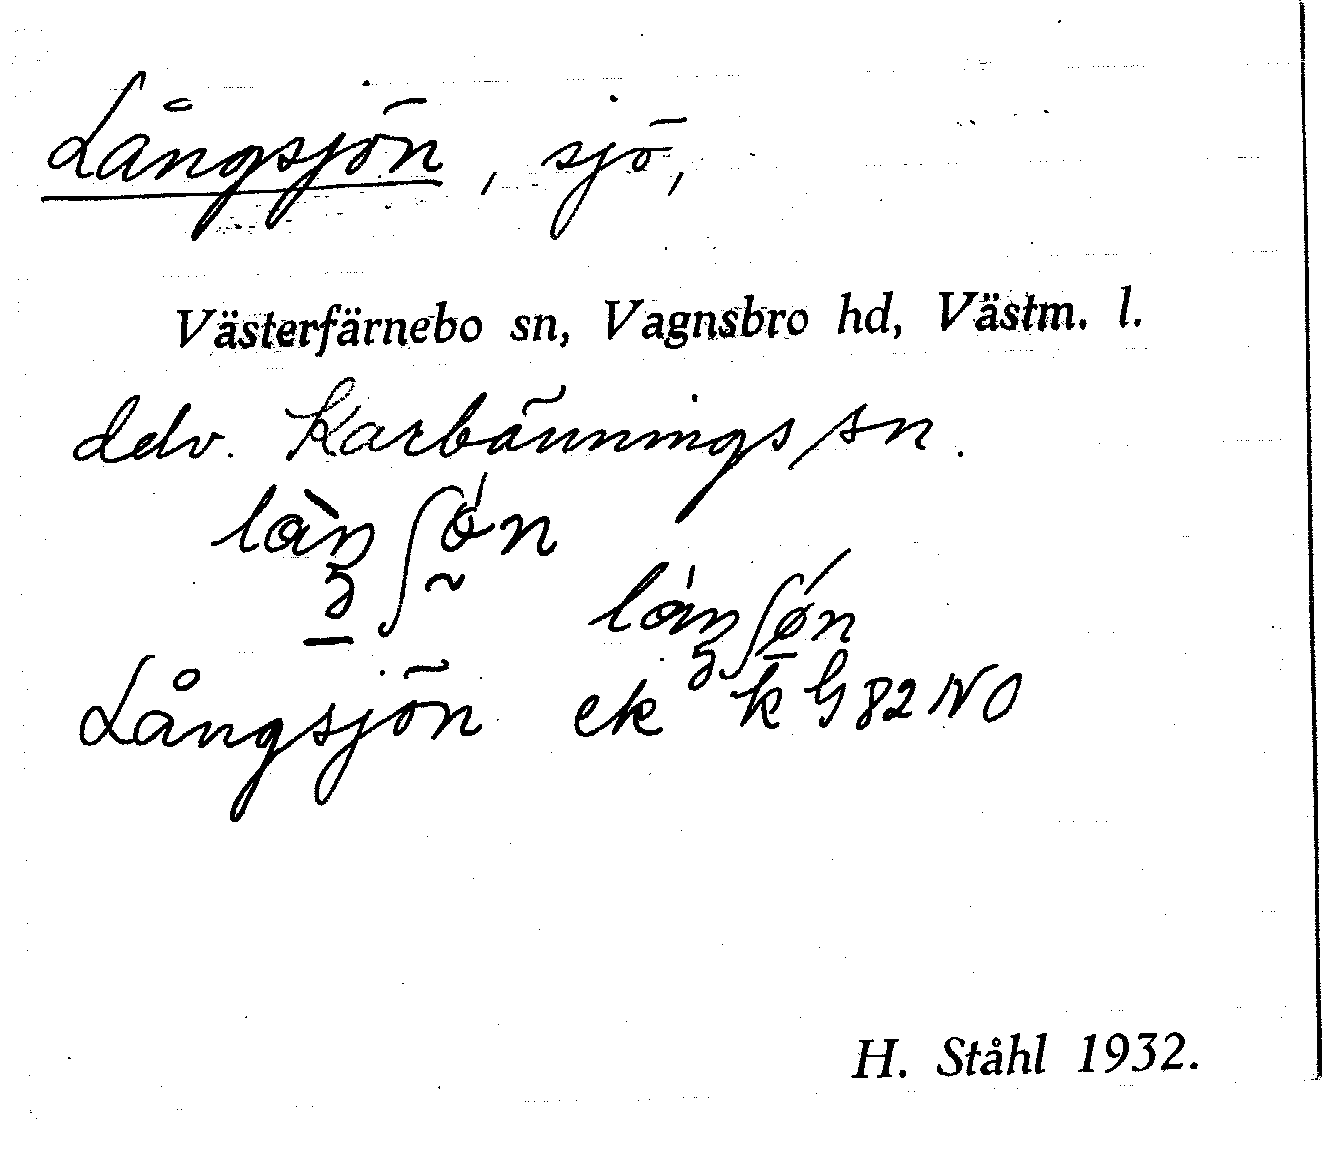 Långsjön, sjö,
Västerfärnebo sn, Vagnsbro hd, Västm. l.
delv. Karbännings sn.
Långsjön ek k G82 NO
H. Ståhl 1932.